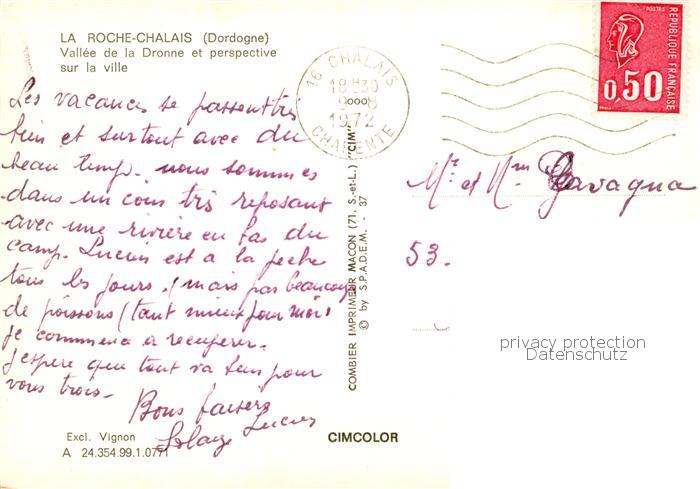 LA ROCHE-CHALAIS (Dordogne)
Vallée de la Dronne et perspective
sur la ville
Les vacances se passent très
bien et surtout avec du
beau temps. nous sommes
dans un coin très reposant
avec une rivière en bas du
camp. Lucien est à la peche
tous les jours. (mais pas beaucoup
de poissons (tant mieux pour moi)
je commence a recuperer.
J'espère que tout va bien pour
vous trois.
Bons baisers
Lucien
Excl. Vignon
A 24.354.99.1.0771
CIMCOLOR
COMBIER IMPRIMEUR MACON (71. S.-et-L.) "CIM"
© by S.P.A.D.E.M. - 37
16 CHALAIS
18H30
9-8
1972
CHARENTE
POSTES
REPUBLIQUE FRANÇAISE
0,50
Mr et Mme Gavagna
53.
privacy protection
Datenschutz